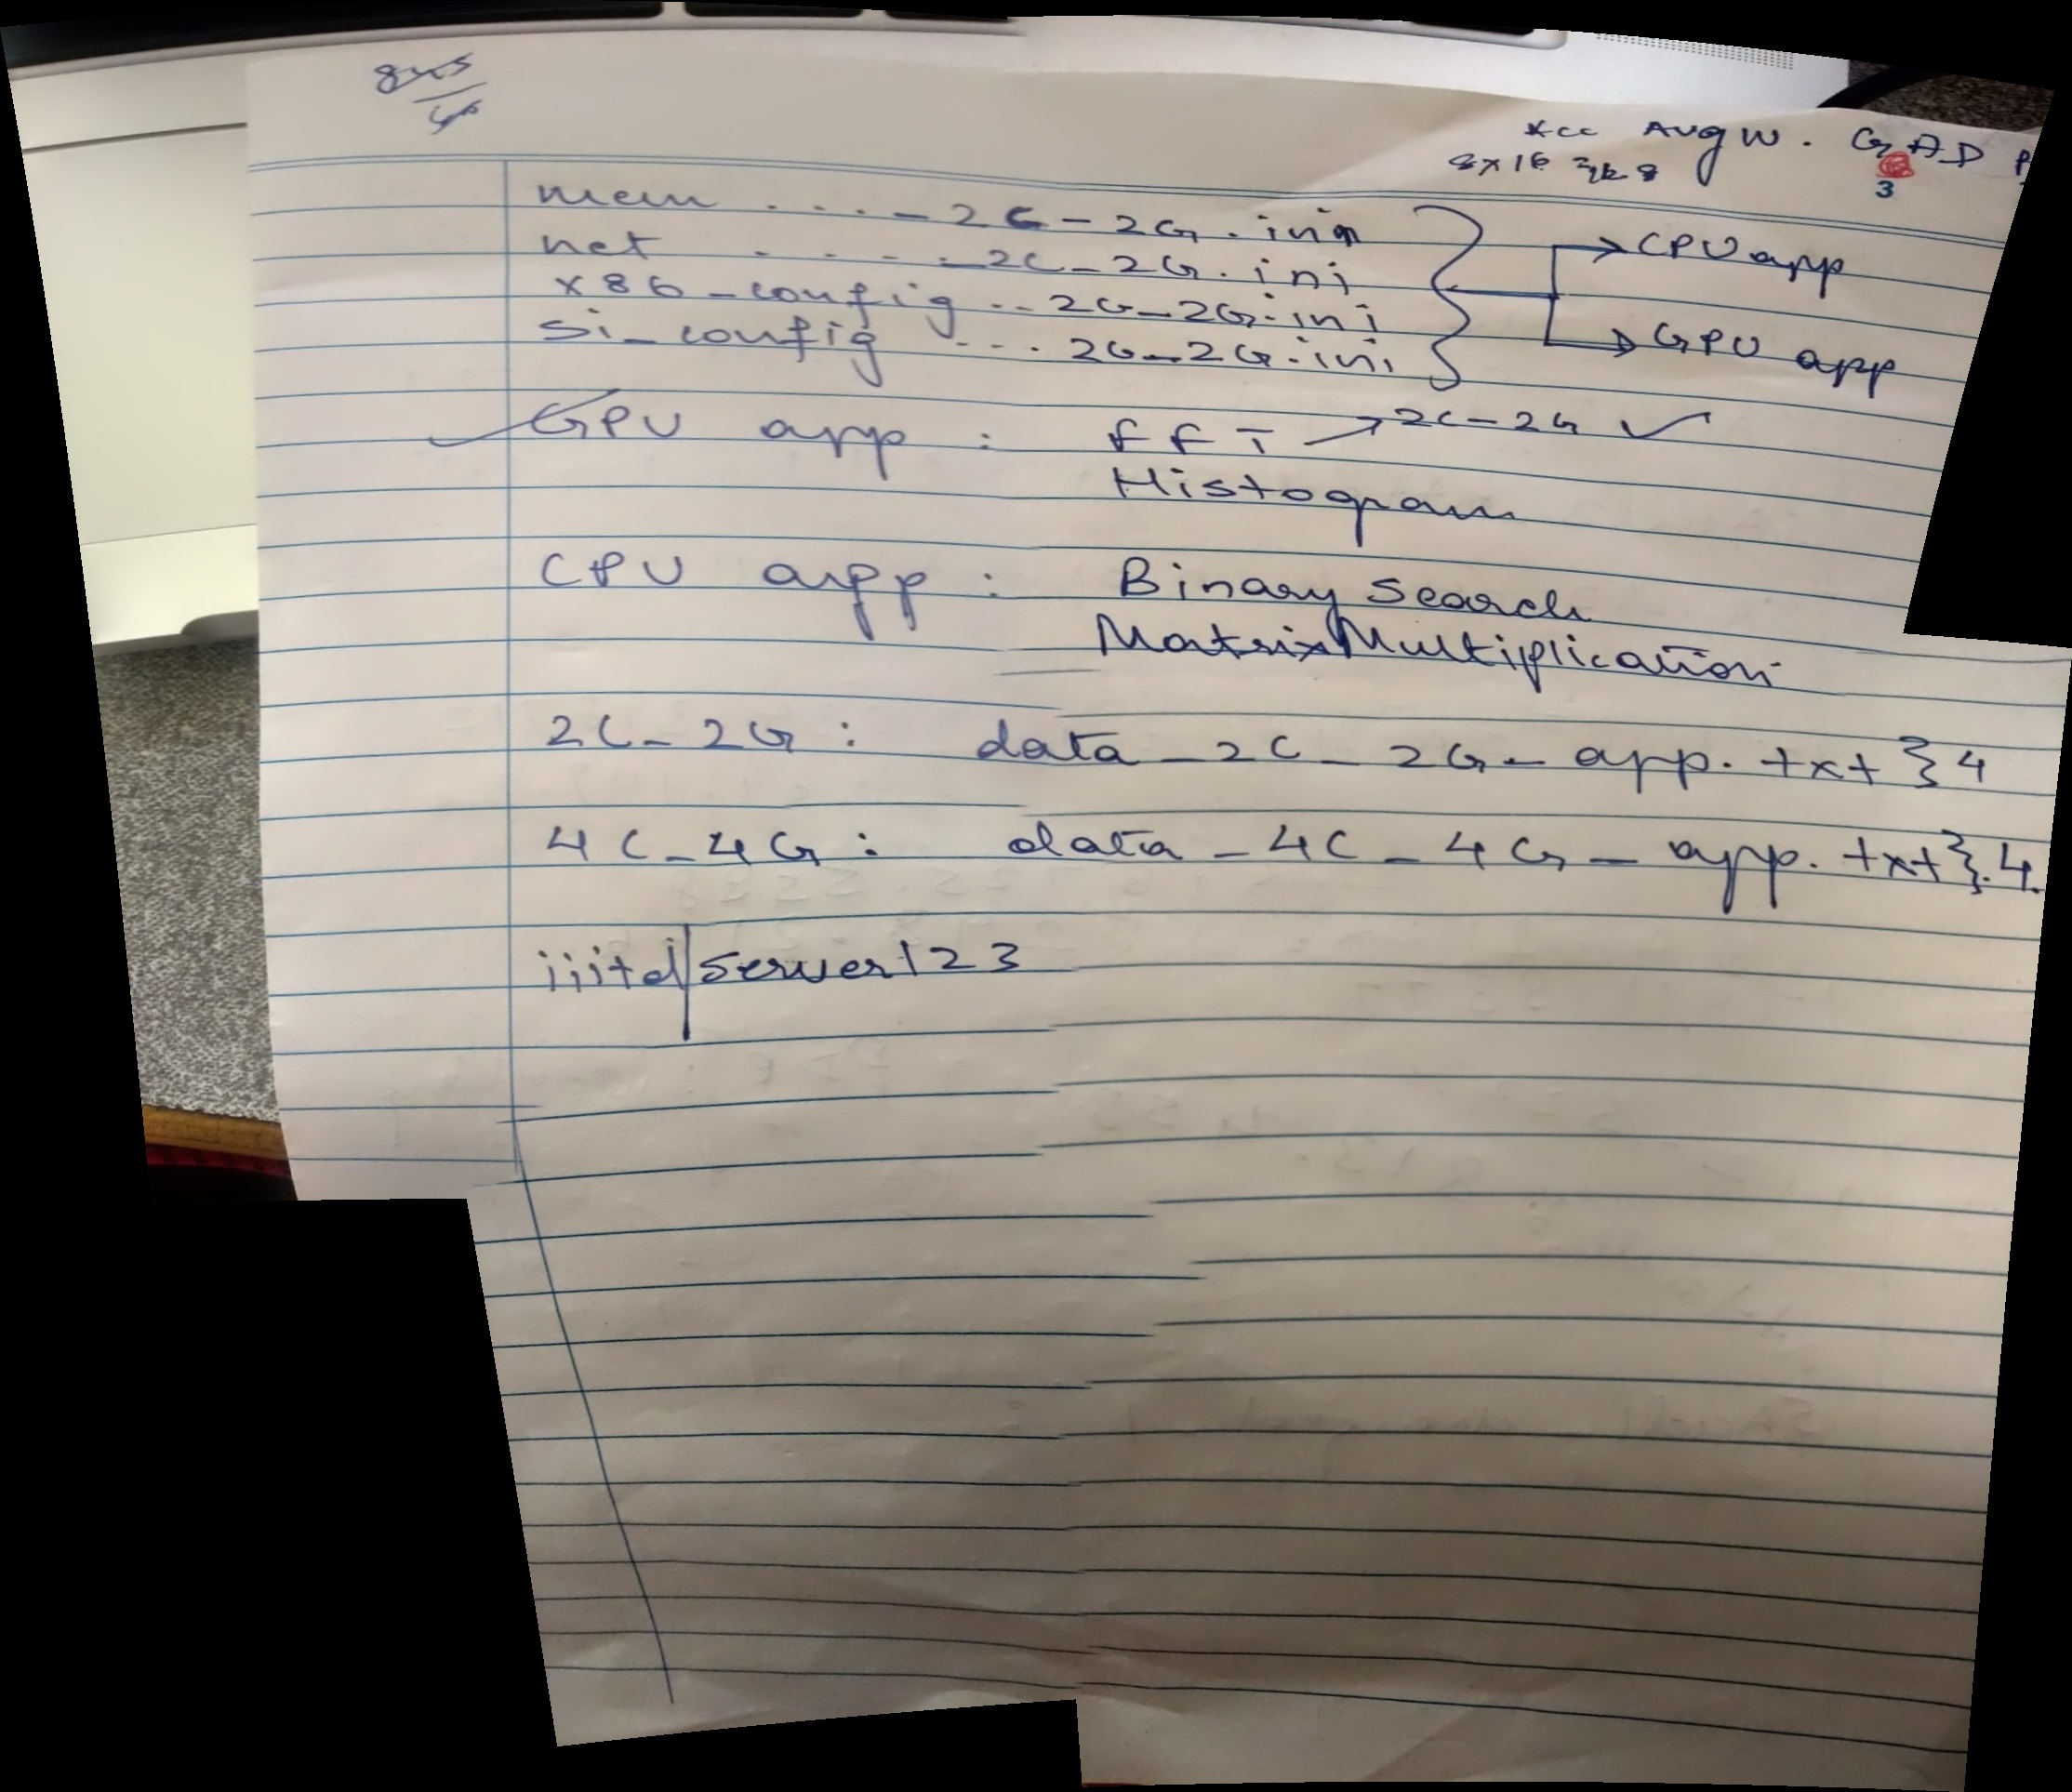 8x5
xcc Aug W. G AD
8x16 8
3
mem ...._2C-2G.ini
net ...._2C_2G.ini
x86_config .. 2G_2G.ini
si_config .... 2G_2G.ini
CPU app
GPU app
GPU app : FFT → 2C-2G ✓
Histogram
CPU app : Binary Search
MatrixMultiplication
2C_2G : data_2C_2G_app.txt } 4
4C_4G : data_4C_4G_app.txt }.4.
iiitd|server123